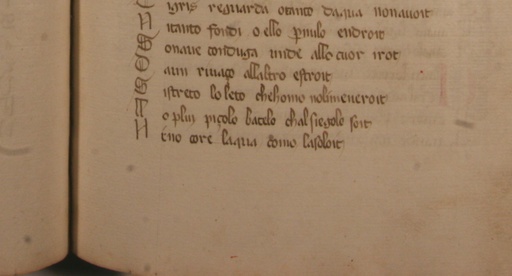 ygris reguarda otanto daqua nonavoit
N itanto fondi o ello pnulo endroit
onave conduga unde allo cuor irot
D aun rivaço allaltro estroit
istreto lo leto chehomo nolimeneroit
o plui piçolo batelo chal siegolo soit
N eno core laqua como lasoloit